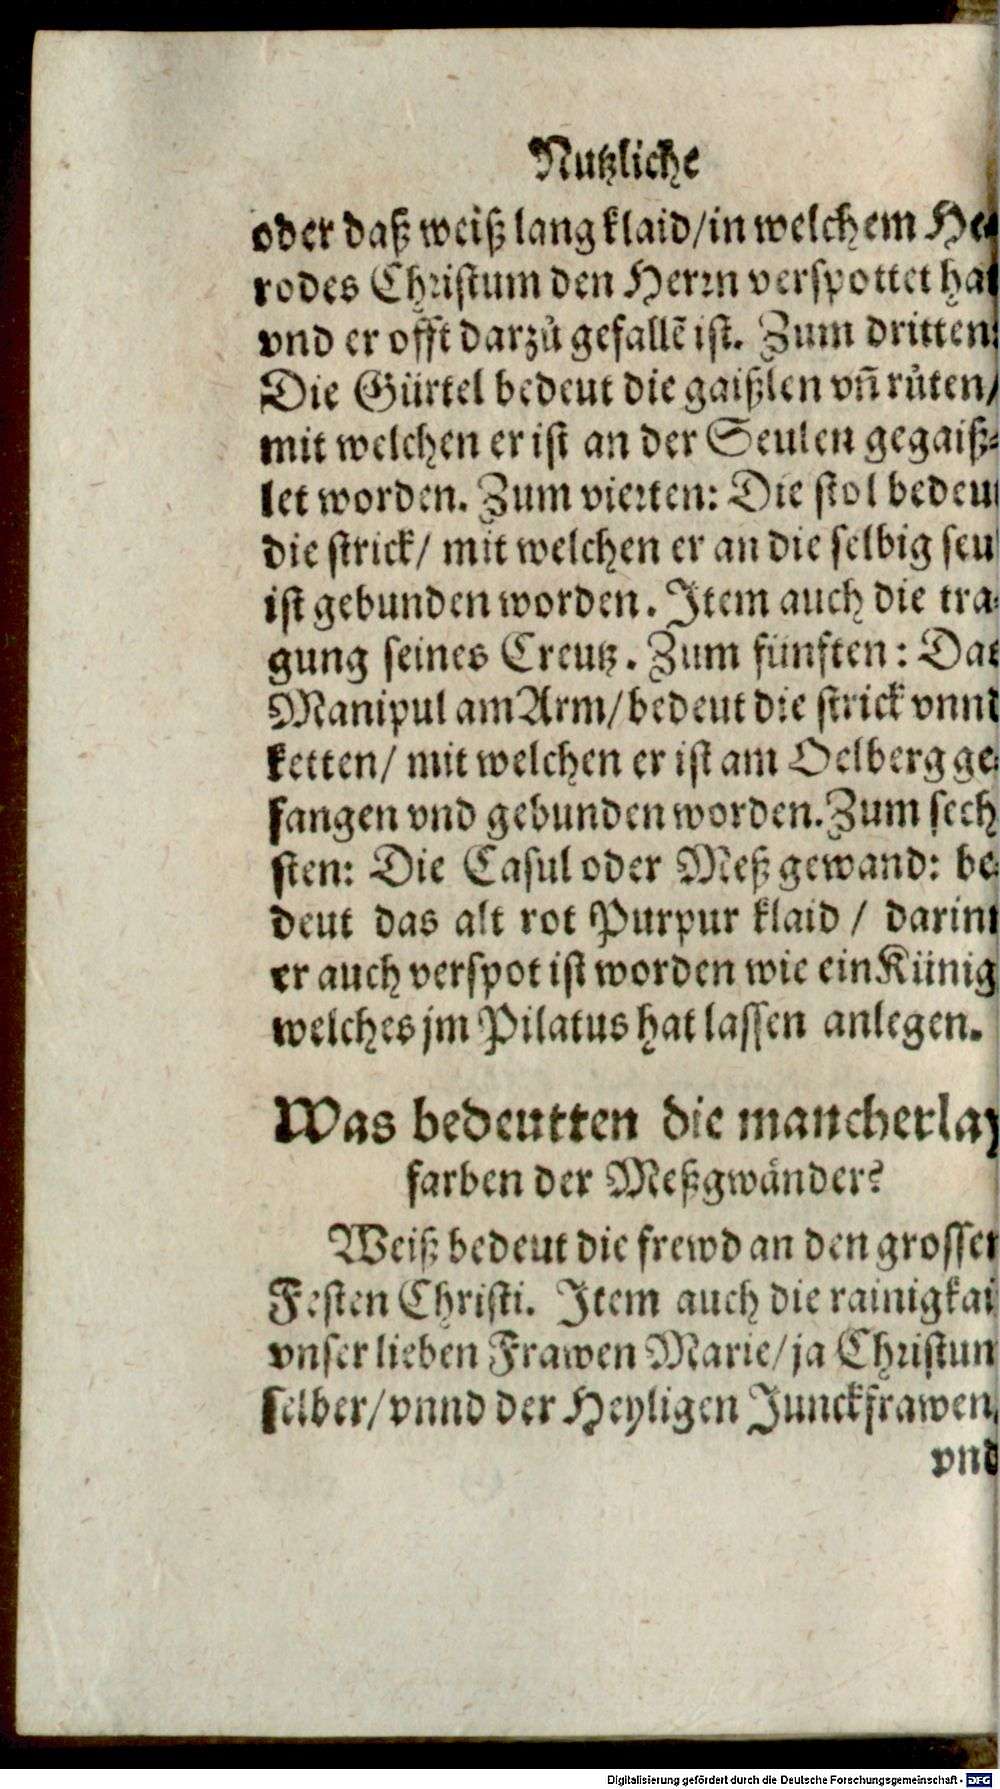 Nutzliche
oder daß weiß lang klaid/in welchem He-
rodes Christum den Herrn verspottet hat
vnd er offt darzů gefallē ist. Zum dritten:
Die Gürtel bedeut die gaißlen vñ růten/
mit welchen er ist an der Seulen gegaiß-
let worden. Zum vierten: Die stol bedeut
die strick/ mit welchen er an die selbig seul
ist gebunden worden. Item auch die tra-
gung seines Creutz. Zum fünften: Das
Manipul am Arm/bedeut die strick vnnd
ketten/ mit welchen er ist am Oelberg ge-
fangen vnd gebunden worden. Zum sech
sten: Die Casul oder Meß gewand: be-
deut das alt rot Purpur klaid / darinn
er auch verspot ist worden wie ein Künig
welches jm Pilatus hat lassen anlegen.
Was bedeutten die mancherlay
farben der Meßgwånder?
Weiß bedeut die frewd an den grossen
Festen Christi. Item auch die rainigkait
vnser lieben Frawen Marie/ja Christum
selber/vnnd der Heyligen Junckfrawen,
vnd
Digitalisierung gefördert durch die Deutsche Forschungsgemeinschaft - DFG